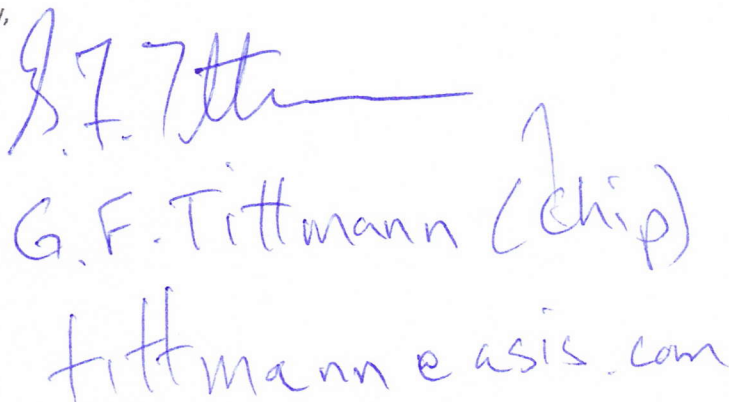 y,
G.F. Tittmann
G.F. Tittmann (Chip)
tittmann@asis.com